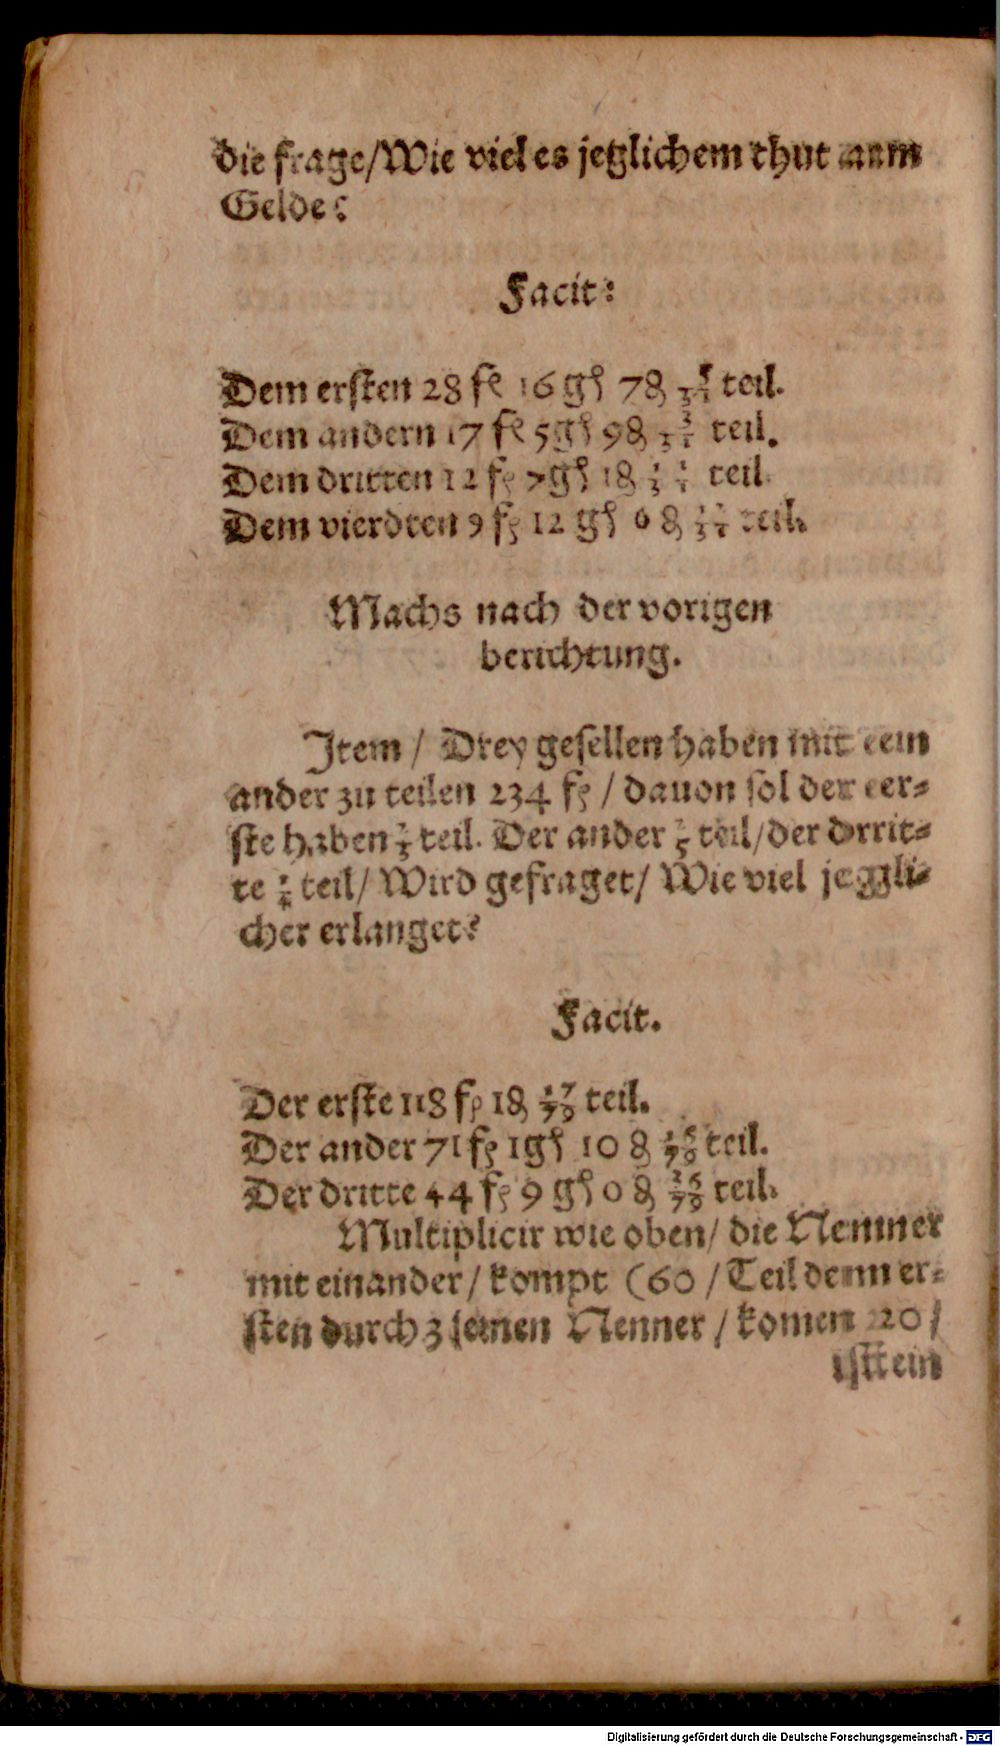 die frage/Wie viel es jetzlichem thut am
Gelde?
Facit:
Dem ersten 28 fl 16 gℓ 7 ₰ 5/31 teil.
Dem andern 17 fl 5 gℓ 9 ₰ 3/31 teil.
Dem dritten 12 fl 7 gℓ 1 ₰ 11/31 teil.
Dem vierdten 9 fl 12 gℓ 6 ₰ 12/31 teil.
Machs nach der vorigen
berichtung.
Item / Drey gesellen haben mit ein
ander zu teilen 234 fl / dauon sol der er⸗
ste haben 2/3 teil. Der ander 2/5 teil/der drit⸗
te 1/4 teil/ Wird gefraget/ Wie viel jegli⸗
cher erlanget?
Facit.
Der erste 118 fl 1 ₰ 17/79 teil.
Der ander 71 fl 1 gℓ 10 ₰ 26/79 teil.
Der dritte 44 fl 9 gℓ 0 ₰ 36/79 teil.
Multiplicir wie oben/ die Nenner
mit einander / kompt (60 / Teil dem er⸗
sten durch 3 seinen Nenner / komen 20 /
ist ein
Digitalisierung gefördert durch die Deutsche Forschungsgemeinschaft - DFG